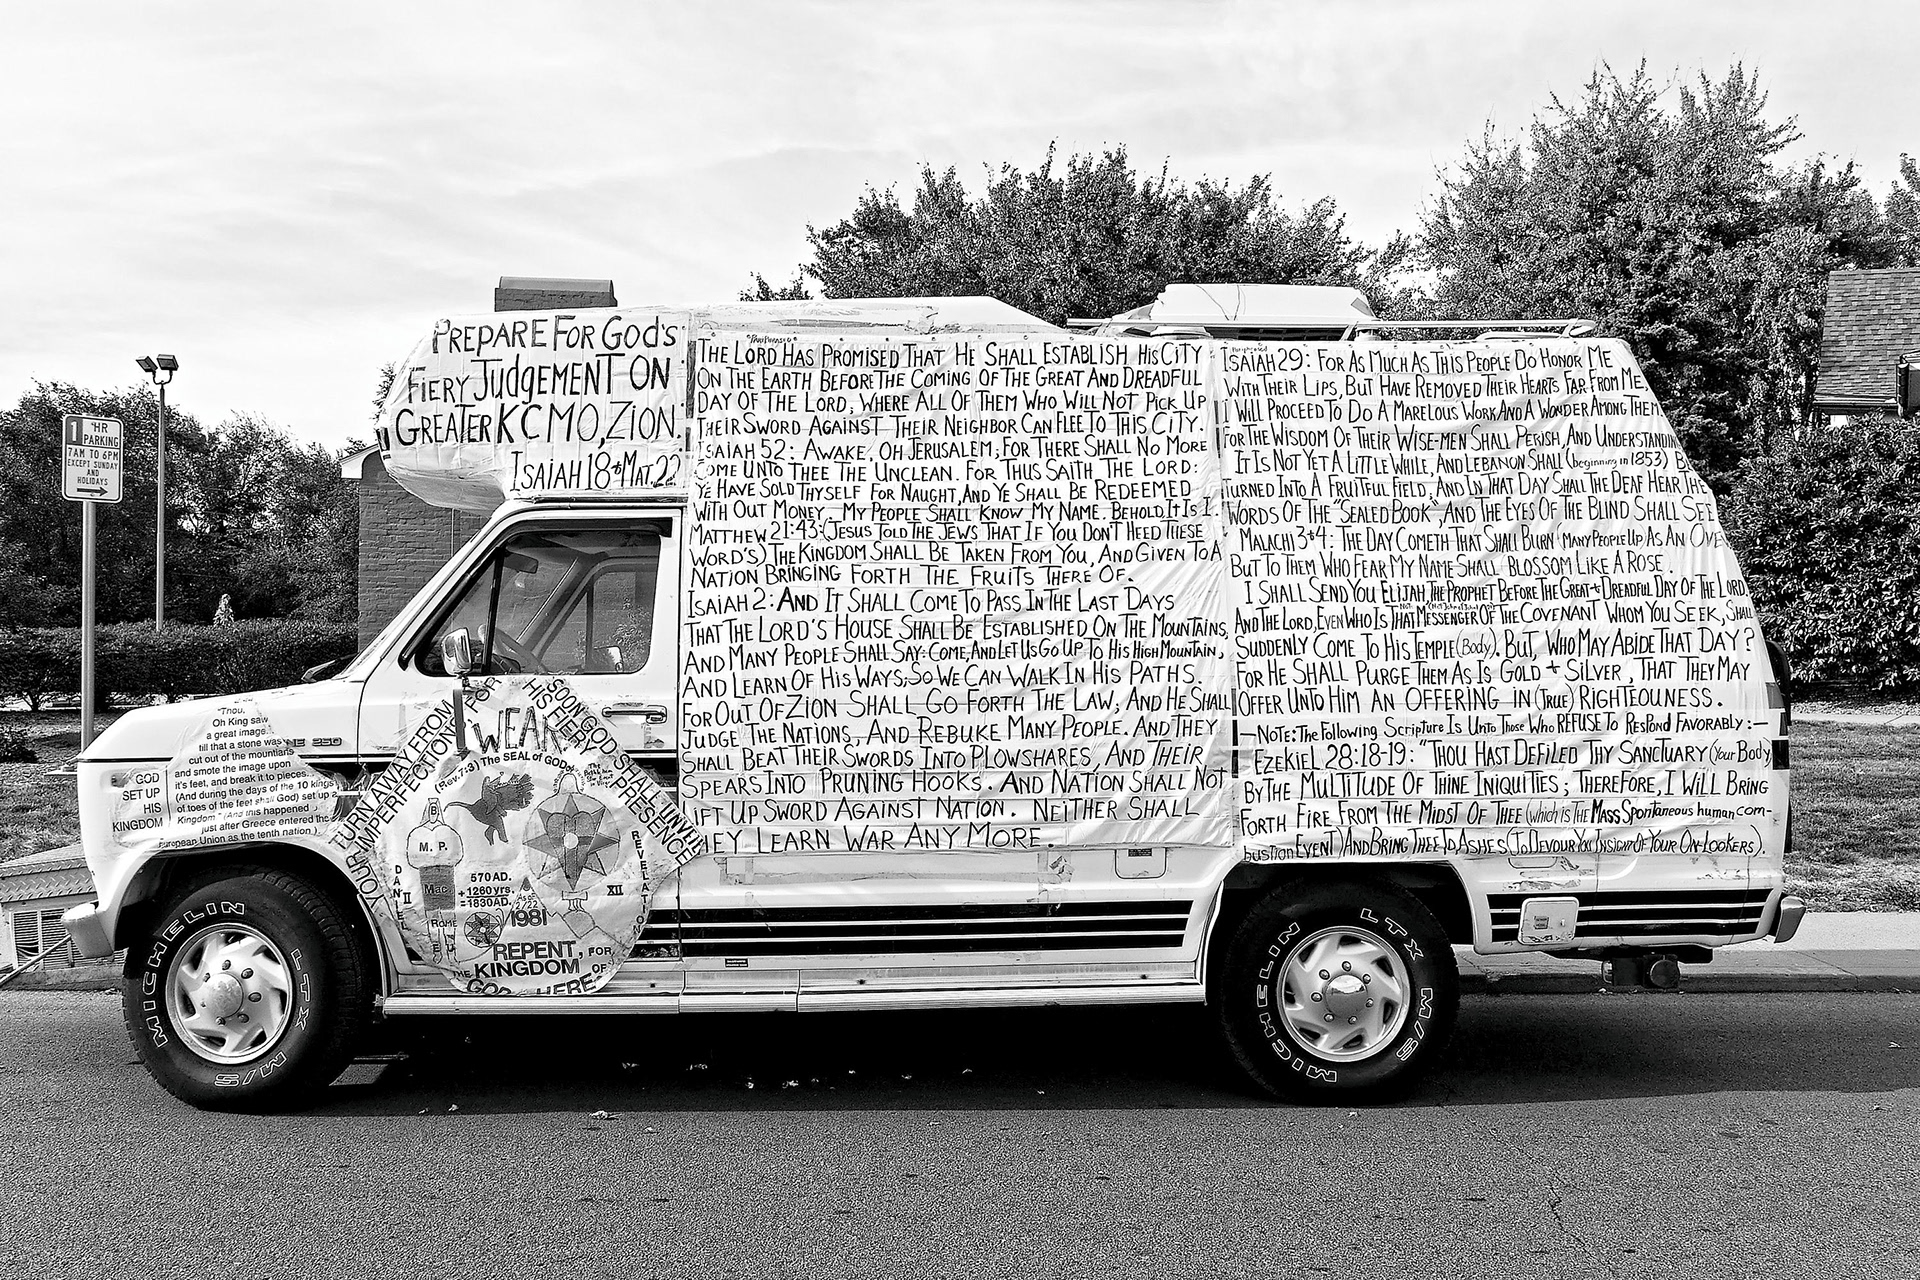 1 HR
PARKING
7AM TO 6PM
EXCEPT SUNDAY
AND
HOLIDAYS
PREPARE FOR GOd's
FIERY JUdGEMENT ON
GREATER KCMO, ZION.
ISAIAH 18 + MAT. 22
"PARAPHRASED"
THE LORD HAS PROMISED THAT HE SHALL ESTABLISH HIS CITY
ON THE EARTH BEFORE THE COMING OF THE GREAT AND DREADFUL
DAY OF THE LORD, WHERE ALL OF THEM WHO WILL NOT PICK UP
THEIR SWORD AGAINST THEIR NEIGHBOR CAN FLEE TO THIS CITY.
ISAIAH 52: AWAKE, OH JERUSALEM; FOR THERE SHALL NO MORE
COME UNTO THEE THE UNCLEAN. FOR THUS SAITH THE LORD:
YE HAVE SOLD THYSELF FOR NAUGHT, AND YE SHALL BE REDEEMED
WITH OUT MONEY. MY PEOPLE SHALL KNOW MY NAME. BEHOLD IT IS I.
MATTHEW 21:43: (JESUS TOLD THE JEWS THAT IF YOU DON'T HEED THESE
WORD'S) THE KINGDOM SHALL BE TAKEN FROM YOU, AND GIVEN TO A
NATION BRINGING FORTH THE FRUITS THERE OF.
ISAIAH 2: AND IT SHALL COME TO PASS IN THE LAST DAYS
THAT THE LORD'S HOUSE SHALL BE ESTABLISHED ON THE MOUNTAINS,
AND MANY PEOPLE SHALL SAY: COME, AND LET US GO UP TO HIS HIGH MOUNTAIN,
AND LEARN OF HIS WAYS; SO WE CAN WALK IN HIS PATHS.
FOR OUT OF ZION SHALL GO FORTH THE LAW, AND HE SHALL
JUDGE THE NATIONS, AND REBUKE MANY PEOPLE. AND THEY
SHALL BEAT THEIR SWORDS INTO PLOWSHARES, AND THEIR
SPEARS INTO PRUNING HOOKS. AND NATION SHALL NOT
IFT UP SWORD AGAINST NATION. NEITHER SHALL
HEY LEARN WAR ANY MORE.
ISAIAH 29: FOR AS MUCH AS THIS PEOPLE DO HONOR ME
WITH THEIR LIPS, BUT HAVE REMOVED THEIR HEARTS FAR FROM ME,
I WILL PROCEED TO DO A MARELOUS WORK AND A WONDER AMONG THEM.
FOR THE WISDOM OF THEIR WISE-MEN SHALL PERISH, AND UNDERSTANDIN
IT IS NOT YET A LITTLE WHILE, AND LEBANON SHALL (beginning in 1853) B
TURNED INTO A FRUITFUL FIELD, AND IN THAT DAY SHALL THE DEAF HEAR THE
WORDS OF THE "SEALED BOOK", AND THE EYES OF THE BLIND SHALL SEE
MALACHI 3+4: THE DAY COMETH THAT SHALL BURN (MANY PEOPLE UP AS AN OVE
BUT TO THEM WHO FEAR MY NAME SHALL BLOSSOM LIKE A ROSE.
I SHALL SEND YOU ELIJAH, THE PROPHET BEFORE THE GREAT + DREADFUL DAY OF THE LORD,
AND THE LORD, EVEN WHO IS THAT MESSENGER OF THE COVENANT WHOM YOU SEEK, SHALL
SUDDENLY COME TO HIS TEMPLE (Body). BUT, WHO MAY ABIDE THAT DAY?
FOR HE SHALL PURGE THEM AS IS GOLD + SILVER, THAT THEY MAY
OFFER UNTO HIM AN OFFERING IN (TRUE) RIGHTEOUNESS.
—NOTE: THE FOLLOWING SCRIPTURE IS UNTO THOSE WHO REFUSE TO RESPOND FAVORABLY:—
EZEKIEL 28:18-19: "THOU HAST DEFILED THY SANCTUARY (YOUR BODY)
BY THE MULTITUDE OF THINE INIQUITIES; THEREFORE, I WILL BRING
FORTH FIRE FROM THE MIDST OF THEE (WHICH IS THE MASS SPONTANEOUS human com-
bustian EVENT) AND BRING THEE TO ASHES (TO DEVOUR YOU IN SIGHT OF YOUR ON-LOOKERS).
"Thou,
Oh King saw
a great image.
till that a stone was
cut out of the mountians
and smote the image upon
it's feet, and break it to pieces.
(And during the days of the 10 kings
of toes of the feet shall God) set up a
Kingdom " (And this happened
just after Greece entered the
European Union as the tenth nation ).
GOD
SET UP
HIS
KINGDOM
250
TURN AWAY FROM
YOUR IMPERFECTION, FOR
SOON GOD SHALL UNVEIL
HIS FIERY PRESENCE
WEAK
(Rev.7:3) The SEAL of GOD
M. P.
Mac
ROME
DANIEL II
570 AD.
+1260yrs.
=1830AD.
1981
REVELATION
XII
REPENT, FOR
THE KINGDOM OF
GOD HERE
MICHELIN LTX M/S
MICHELIN LTX M/S